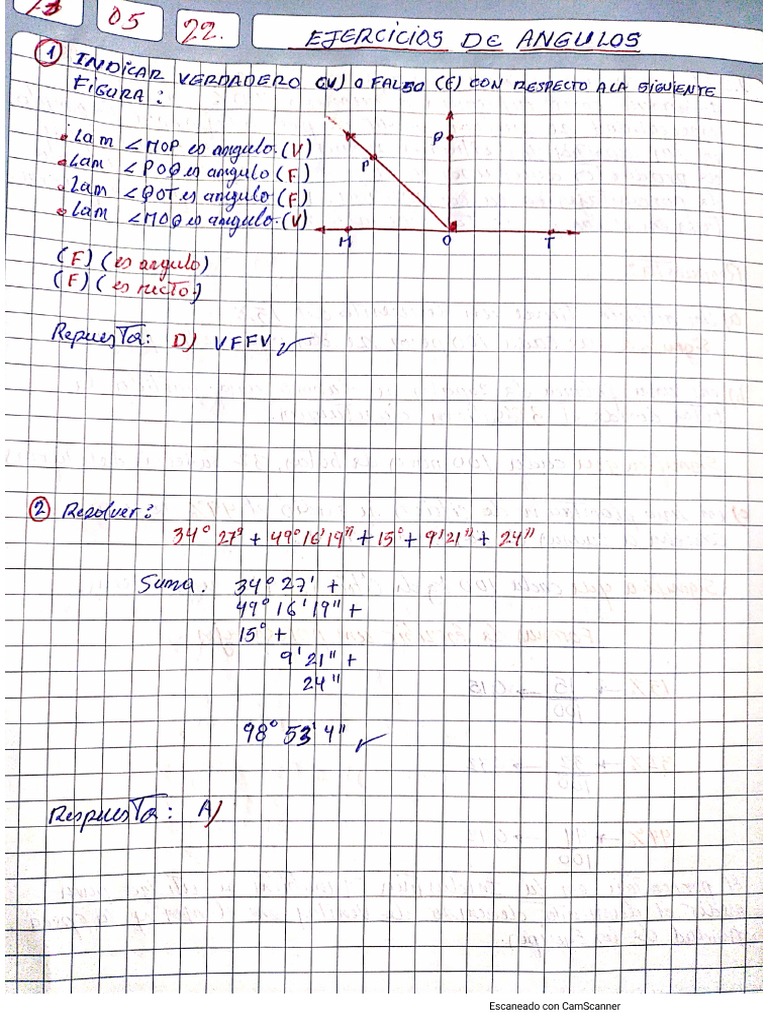 05
22.
EJERCICIOS DE ANGULOS
1 INDICAR VERDADERO (V) O FALSO (F) CON RESPECTO A LA SIGUIENTE
FIGURA:
• Lam ∠MOP es angulo. (V)
• Lam ∠POQ es angulo (F)
• Lam ∠QOT es angulo (F)
• Lam ∠MOQ es angulo. (V)
P
P
M
O
T
(F) (es angulo)
(F) (es recto)
Repuesta: D) VFFV ✓
2 Resolver:
34° 27' + 49° 16' 19" + 15° + 9' 21" + 24"
Suma. 34° 27' +
49° 16' 19" +
15° +
9' 21" +
24"
98° 53' 4" ✓
Respuesta: A)
Escaneado con CamScanner